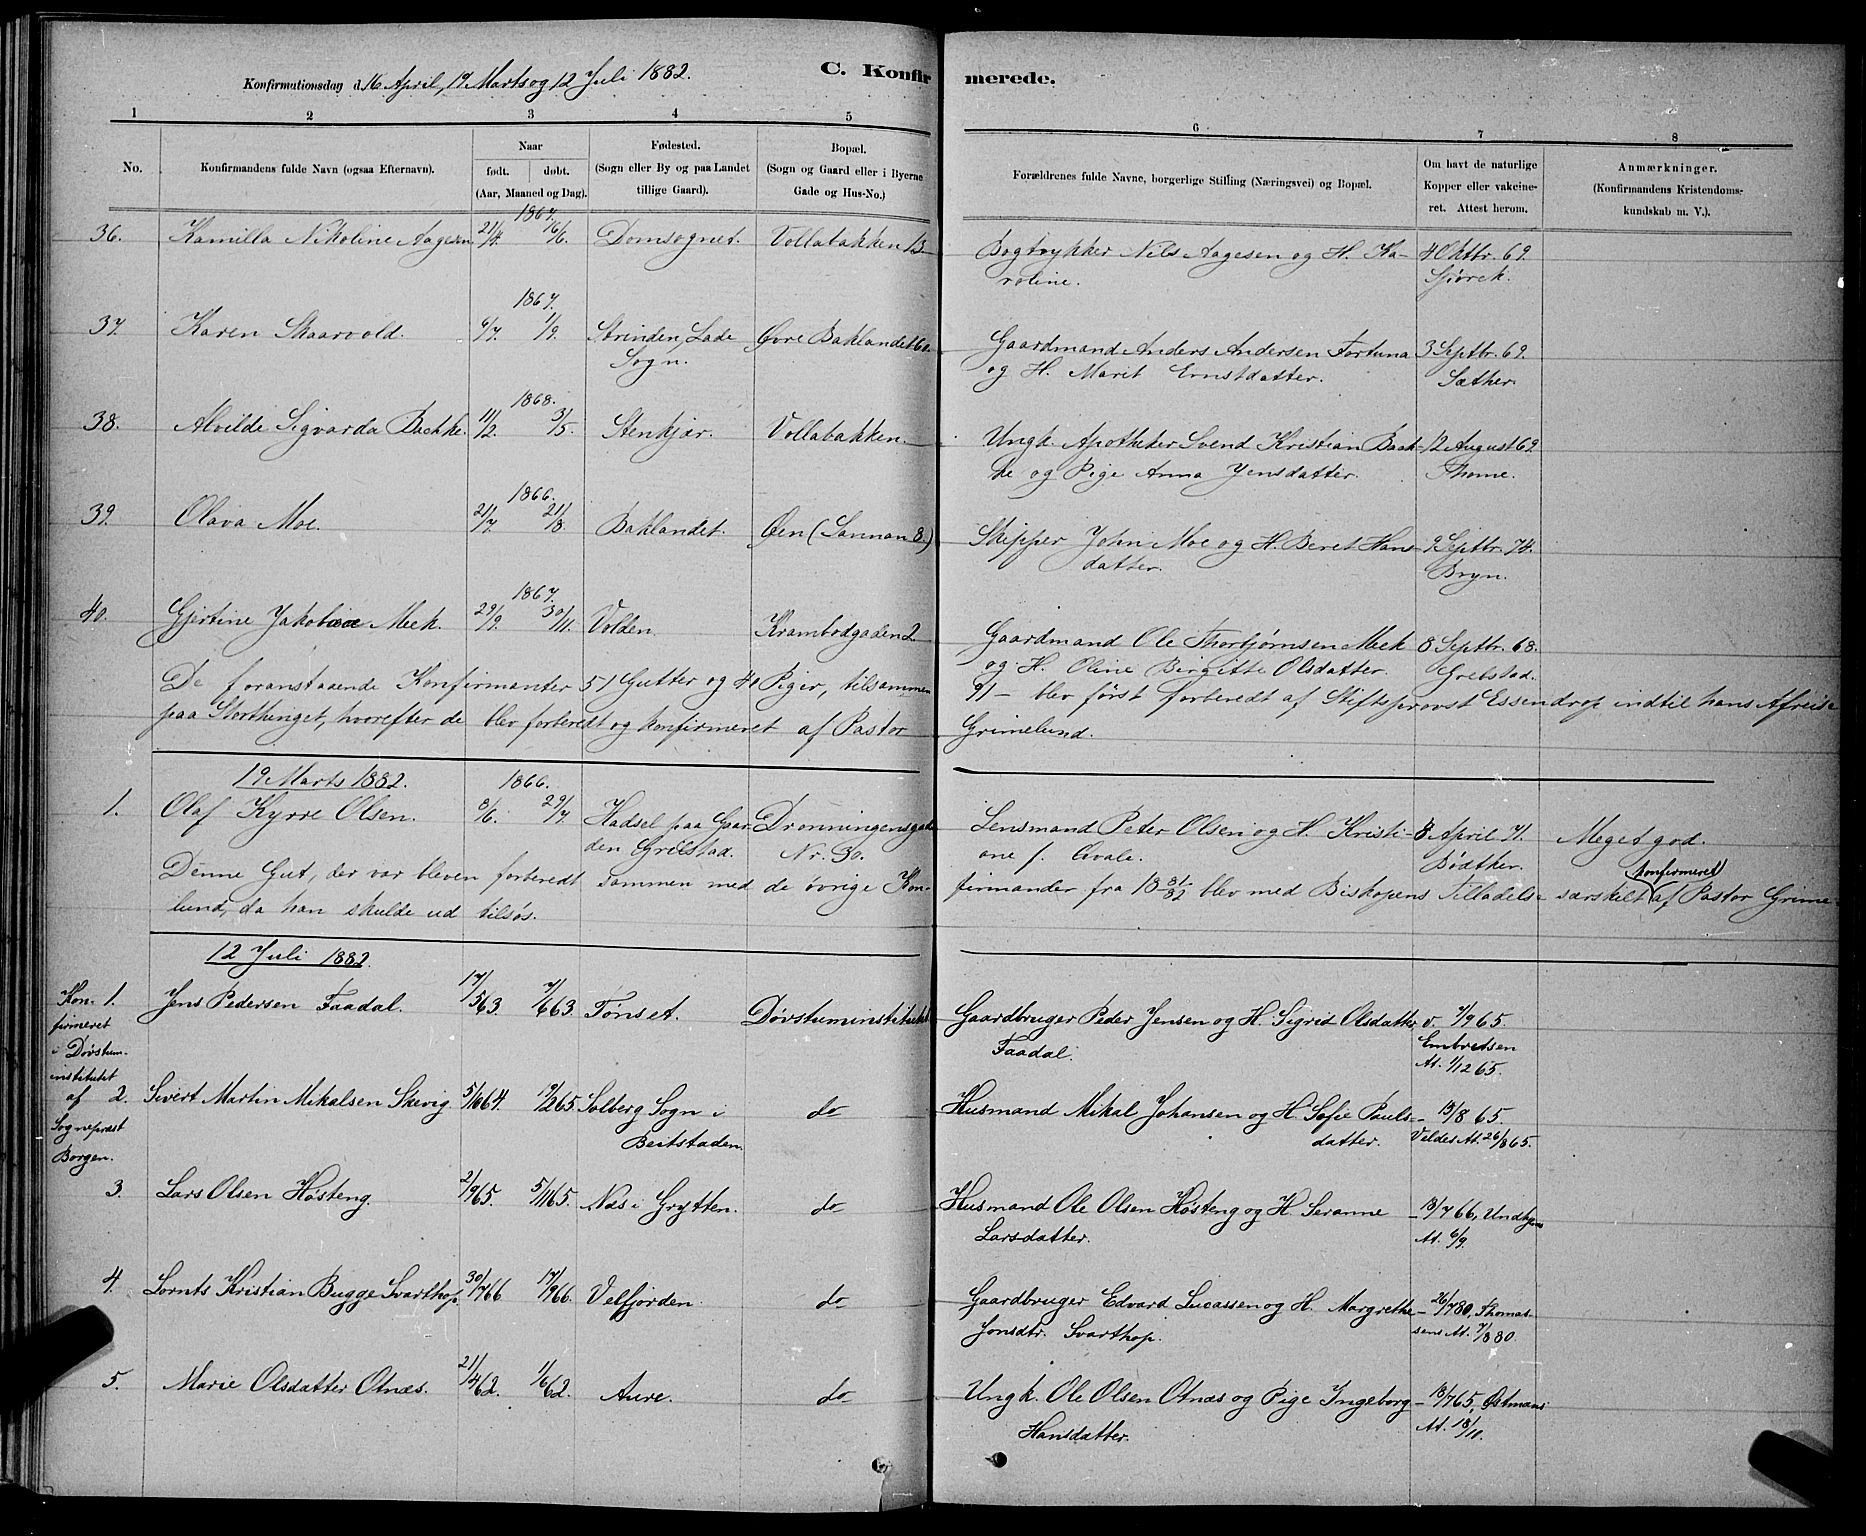 Konfirmationsdag d. 16 April, 19 Marts og 12 Juli 1882.
C. Konfirmerede.
1 2 3 4 5 6 7 8
No.
Konfirmandens fulde Navn (ogsaa Efternavn).
Naar
født. døbt.
(Aar, Maaned og Dag).
Fødested.
(Sogn eller By og paa Landet
tillige Gaard).
Bopæl.
(Sogn og Gaard eller i Byerne
Gade og Hus-No.)
Forældrenes fulde Navne, borgerlige Stilling (Næringsvei) og Bopæl.
Om havt de naturlige
Kopper eller vakcine-
ret. Attest herom.
Anmærkninger.
(Konfirmandens Kristendoms-
kundskab m. V.).
1867.
36. Kamilla Nikoline Aagesen 21/4. 16/6. Domsognet. Vollabakken 13 Bogtrykker Nils Aagesen og H. Ka- 4 Oktbr. 69.
roline.
1867.
37. Karen Skaarvold. 6/7. 1/9. Strinden, Lade Øvre Baklandet Gaardmand Anders Andersen Fortuna 3 Septbr. 69.
Sogn. og H. Marit Ernstdatter. Sæther.
1868.
38. Alvilde Sigvarda Bachke. 11/2. 3/5. Stenkjær. Vollabakken. Ungk. Apotheker Svend Kristian Bach- 12 August 69.
ke og Pige Anna Jensdatter. Thome.
1866.
39. Olava Moe. 21/7. 21/8. Baklandet. Øen (Sannan 8.) Skipper John Moe og H. Beret Hans- 9 Septbr. 74.
datter. Bryn.
1867.
40. Gjertine Jakobine Meek. 29/9. 30/11. Volden. Krambodgaden 2 Gaardmand Ole Thorbjørnsen Meek 8 Septbr. 68.
og H. Oline Birgitte Olsdatter. Grebstad.
De foranstaaende Konfirmanter 51 Gutter og 40 Piger, tilsammen 91 – blev først forberedt af Stiftsprovst Essendrop indtil hans Afreise
paa Storthinget, hvorefter de blev forberedt og konfirmeret af Pastor Grimelund.
19 Marts 1882. 1866.
1. Olaf Kyrre Olsen. 8/6. 29/7. Hadsel paa Gaar- Dronningensgade Lensmand Peter Olsen og H. Kristi- 8 April 71. Meget god.
den Grilstad. Nr. 30. ane f. Qvale. Bødtker.
Denne Gut, der var bleven forberedt sammen med de øvrige Kon- firmander fra 1881/82 blev med Biskopens Tilladelse særskilt konfirmeret af Pastor Grime-
lund, da han skulde ud tilsøs.
12 Juli 1882.
Kon-
firmeret
i Døvstum-
institutet
af
Sognepræst
Borgen.
1. Jens Pedersen Faadal. 17/5 63. 7/6 63. Tønset. Døvstuminstitutet Gaardbruger Peder Jensen og H. Sigrid Olsdatter v. 7/9 65.
Faadal. Embretsen
At. 1/12 65.
2. Sivert Martin Mikalsen Skevig 5/10 64. 19/2 65. Solberg Sogn i do Husmand Mikal Johansen og H. Sofie Pauls- – 13/8 65.
Beitstaden. datter. Veldes At. 26/8 65.
3. Lars Olsen Høsteng. 2/9 65. 5/11 65. Næs i Grytten. do Husmand Ole Olsen Høsteng og H. Seranne – 13/7 66, Undhjem
Larsdatter. At. 6/9.
4. Lornts Kristian Bugge Svarthop. 30/7 66 17/9 66. Velfjorden. do Gaardbruger Edvard Lucassen og H. Margrethe – 26/7 80, Thomas-
Jonsdtr. Svarthop. sens At. 7/8 80.
5. Marie Olsdatter Otnæs. 21/4 62. 1/6 62. Aure. do Ungk. Ole Olsen Otnæs og Pige Ingeborg – 18/7 65, Østmans
Hansdatter. At. 18/10.